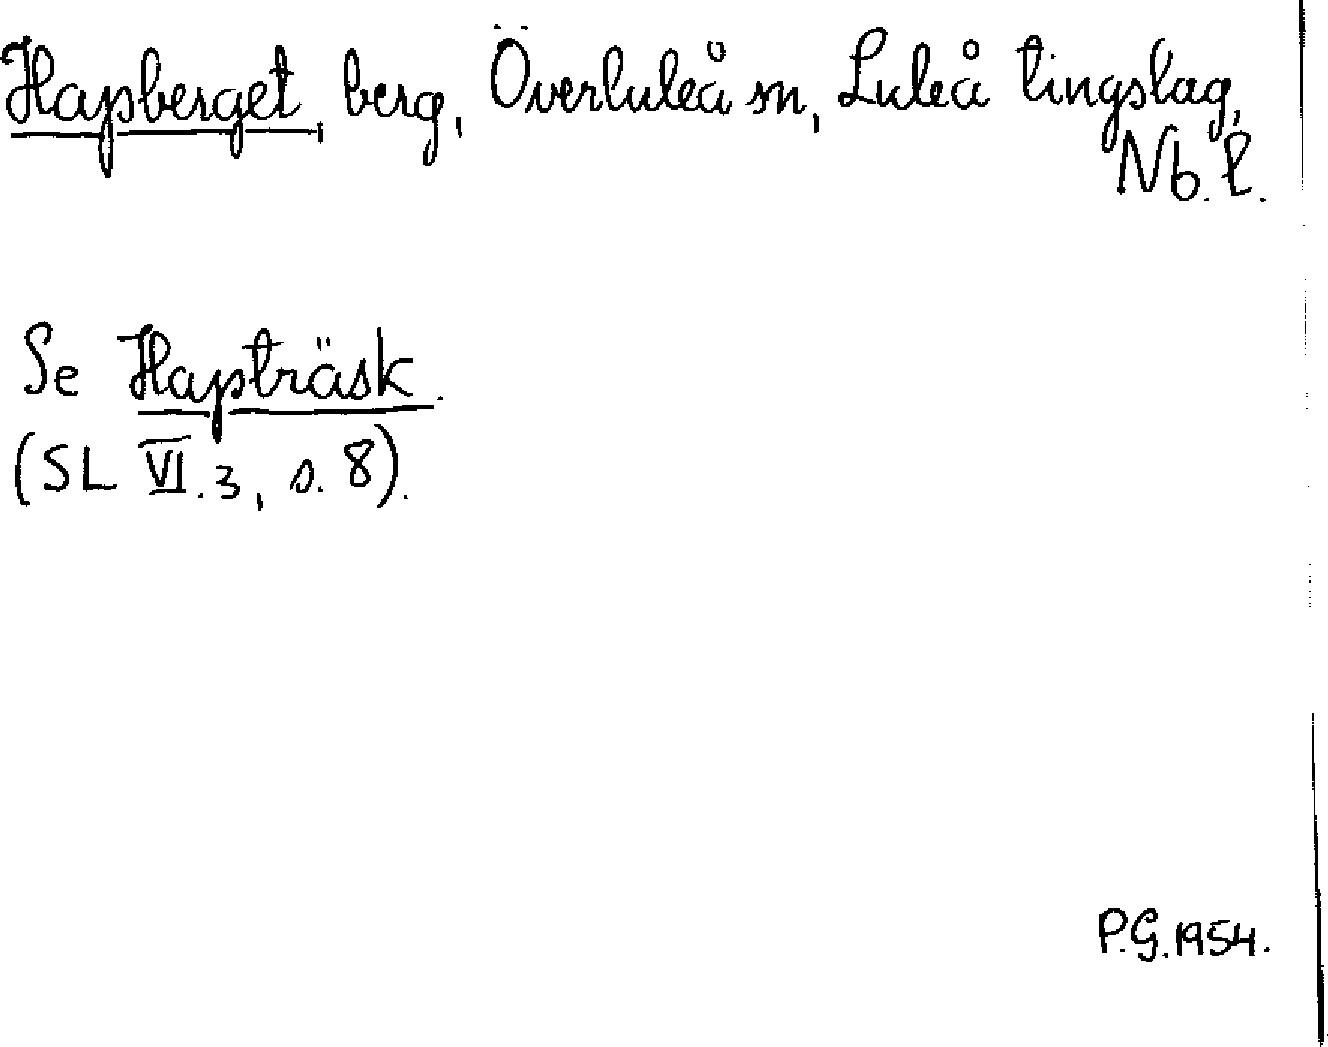 Hapberget, berg, Överluleå sn, Luleå tingslag,
Nb. l.
Se Hapträsk.
(SL VI.3, s. 8).
P.G. 1954.